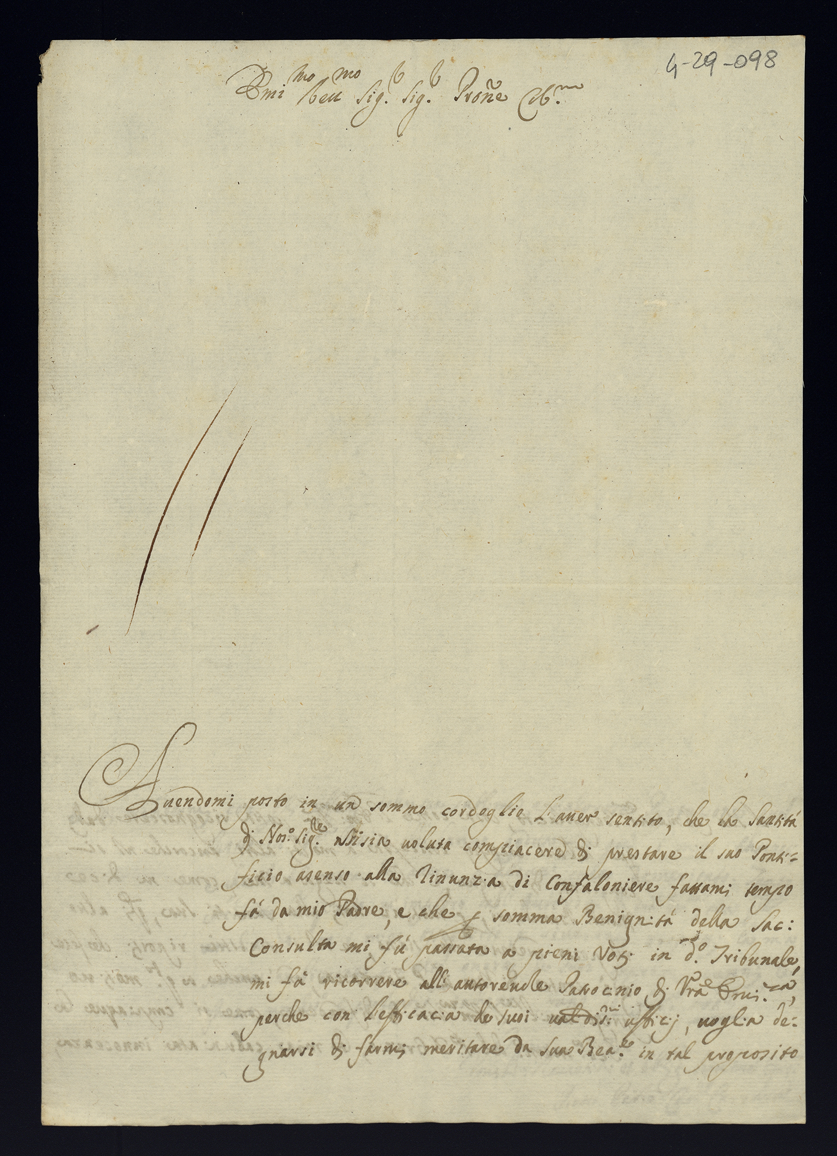 4-29-098
Emi.mo Sig.r Sig.r Prone
Auendomi posto in un sommo cordoglio l'auer sentito, che la Santità
di Nos.o Sig.re non si sia voluta compiacere di prestare il suo Ponti-
ficio asenso alla rinunzia di Confaloniere fattami tempo
fà da mio Padre, e che p somma Benignità della Sac:
Consulta mi fù passata a pieni Voti in d.o Tribunale,
mi fà ricorrere all'autoreuole Patrocinio di Vrã
perche con l'efficacia de suoi ualidis.mi ufficij, uoglia de-
gnarsi di farmi meritare da Sua Bea.ne in tal proposito